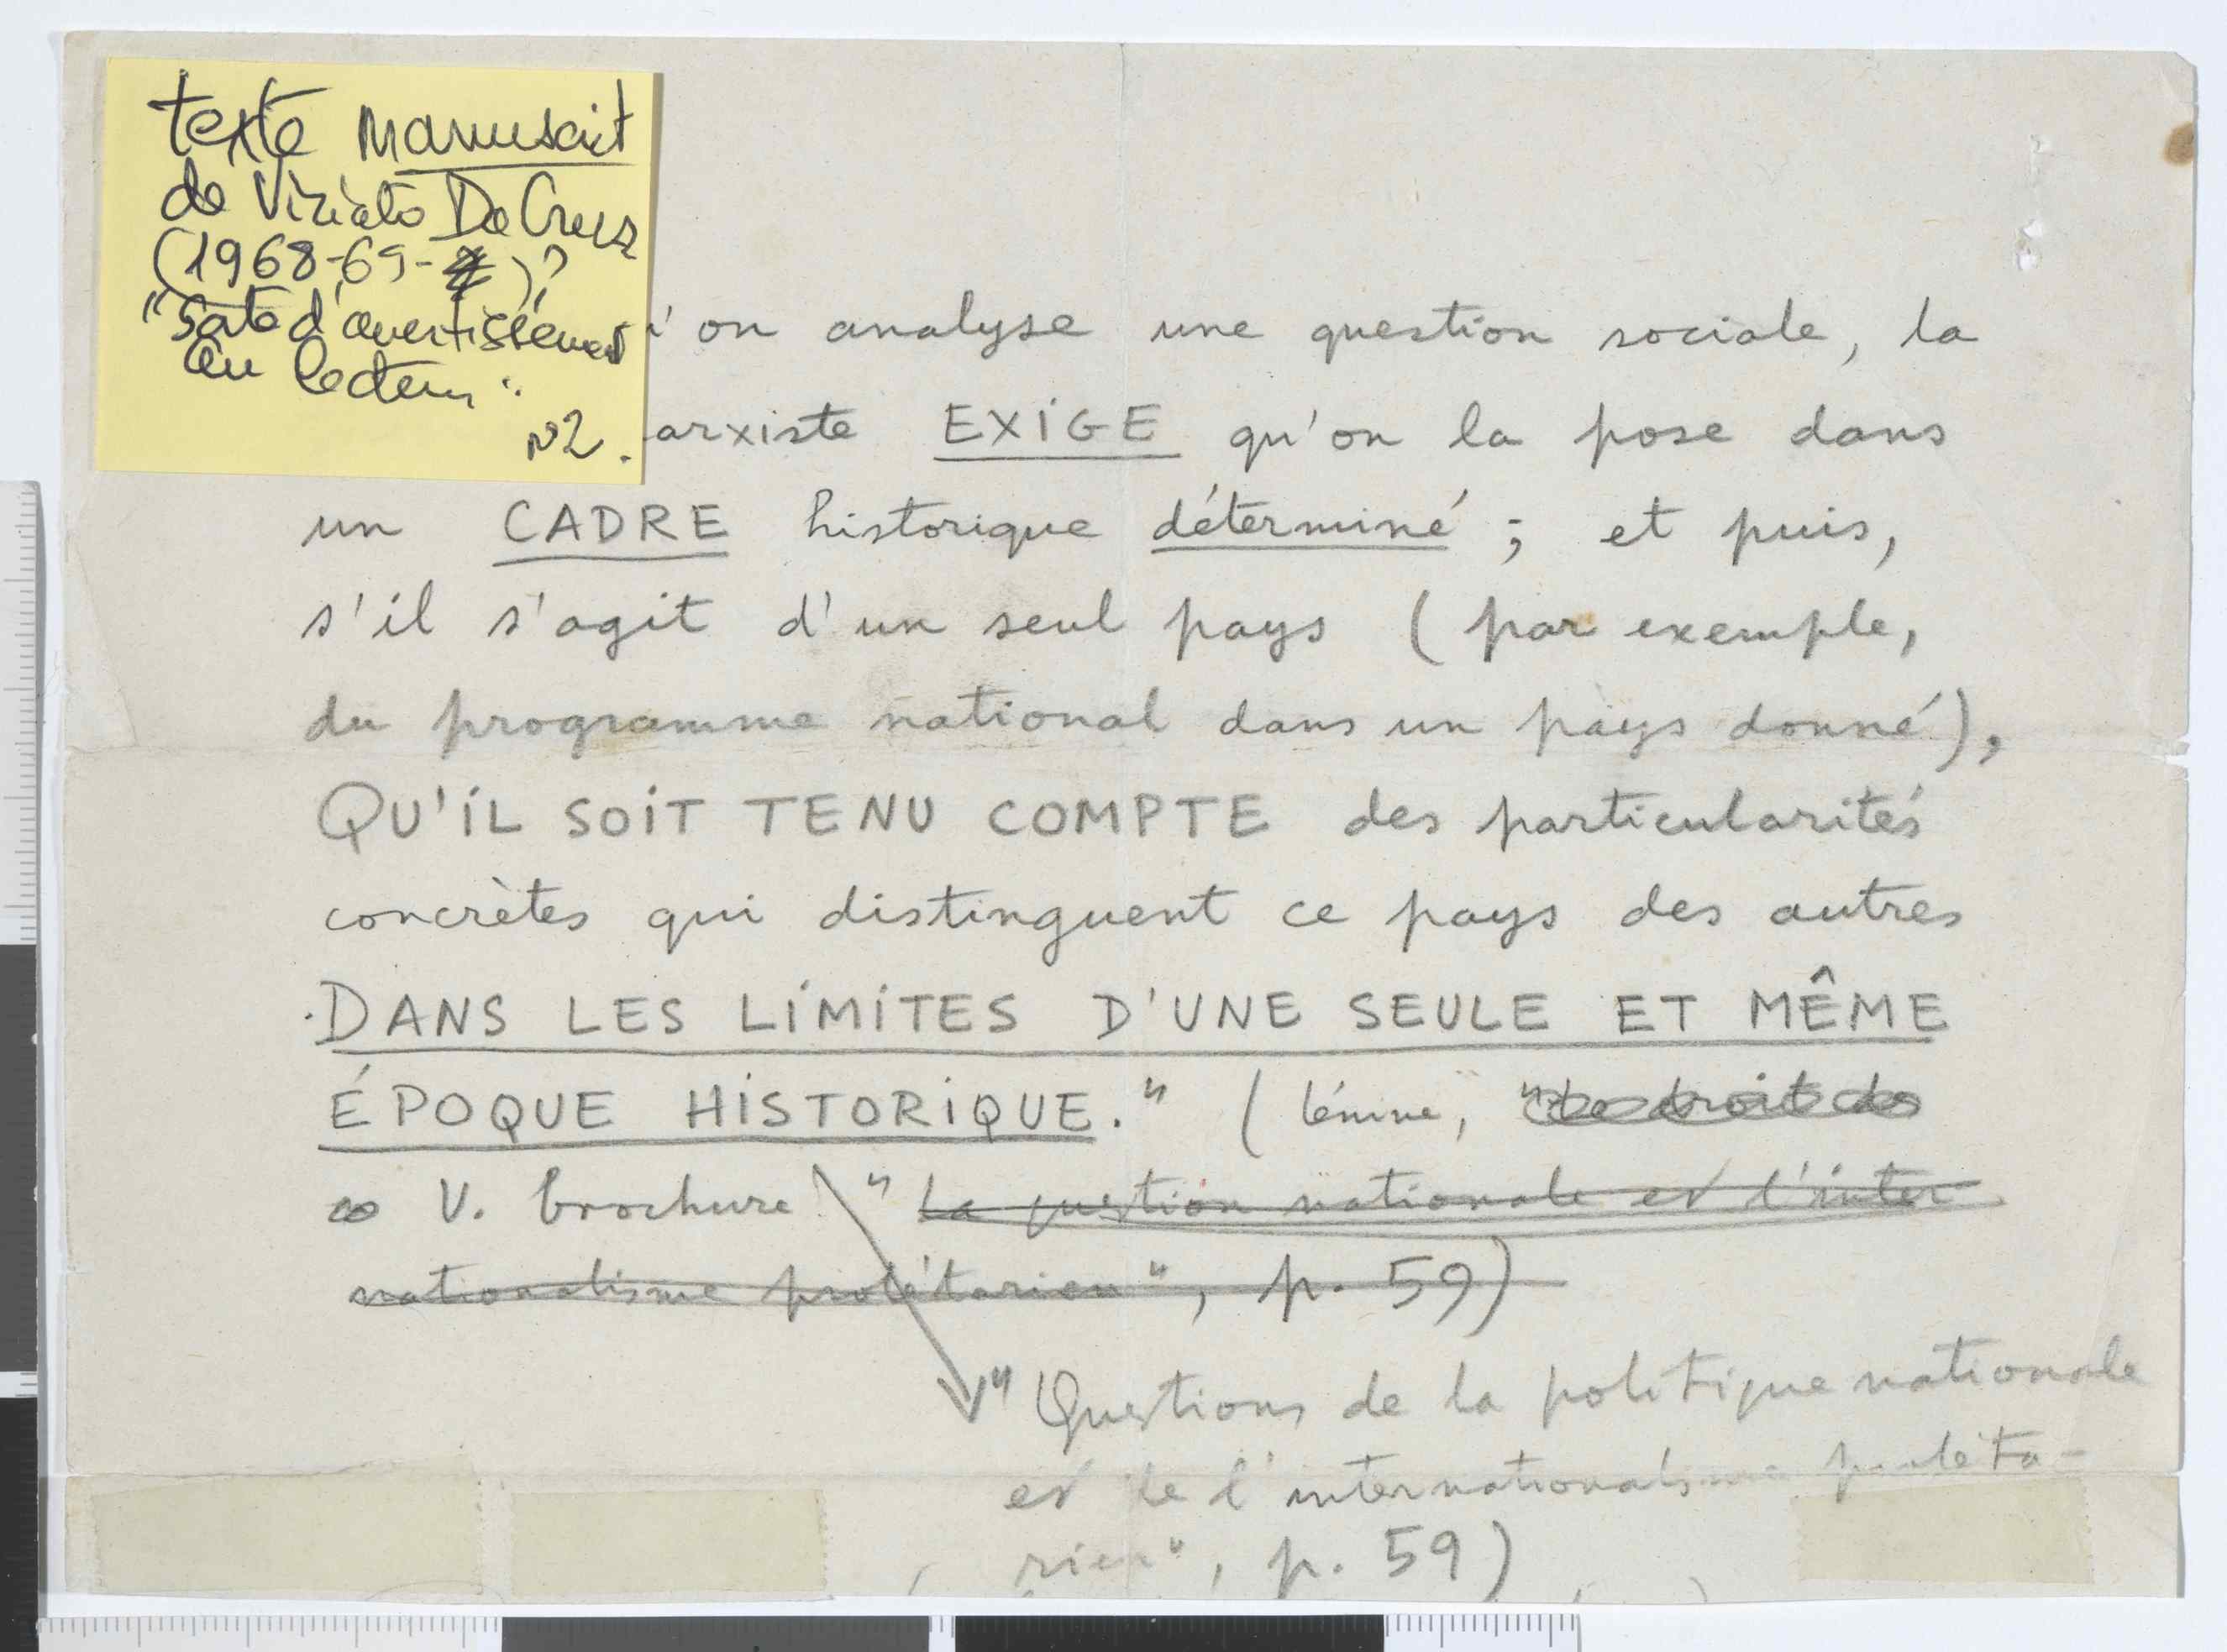 texte manuscrit
de Viriato Da Cruz
(1968-69- )?
"Sorte d'avertissement
au lecteur".
N2.
'on analyse une question sociale, la
arxiste EXIGE qu'on la pose dans
un CADRE historique déterminé ; et puis,
s'il s'agit d'un seul pays ( par exemple,
du programme national dans un pays donné),
QU'IL SOIT TENU COMPTE des particularités
concrètes qui distinguent ce pays des autres
DANS LES LIMITES D'UNE SEULE ET MÊME
ÉPOQUE HISTORIQUE." ( Lénine, "Le droit des
V. brochure "La question nationale et l'inter
nationalisme prolétarien", p. 59)
"Questions de la politique nationale
et de l'internationalisme proléta-
rien", p. 59)